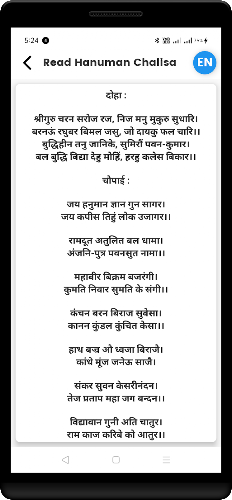 5:24
Read Hanuman Chalisa
EN
दोहा :
श्रीगुरु चरन सरोज रज, निज मनु मुकुरु सुधारि।
बरनऊं रघुबर बिमल जसु, जो दायकु फल चारि।।
बुद्धिहीन तनु जानिके, सुमिरौं पवन-कुमार।
बल बुद्धि बिद्या देहु मोहिं, हरहु कलेस बिकार।।
चौपाई :
जय हनुमान ज्ञान गुन सागर।
जय कपीस तिहुं लोक उजागर।।
रामदूत अतुलित बल धामा।
अंजनि-पुत्र पवनसुत नामा।।
महाबीर बिक्रम बजरंगी।
कुमति निवार सुमति के संगी।।
कंचन बरन बिराज सुबेसा।
कानन कुंडल कुंचित केसा।।
हाथ बज्र औ ध्वजा बिराजै।
कांधे मूंज जनेऊ साजै।
संकर सुवन केसरीनंदन।
तेज प्रताप महा जग बन्दन।।
विद्यावान गुनी अति चातुर।
राम काज करिबे को आतुर।।